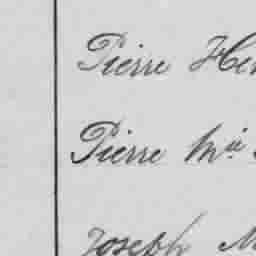 Pierre Hen
Pierre Mie
Joseph M